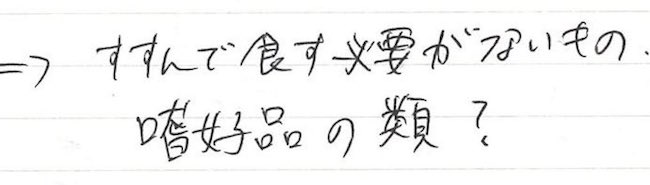 ⇒ すすんで食す必要がないもの.
嗜好品の類?